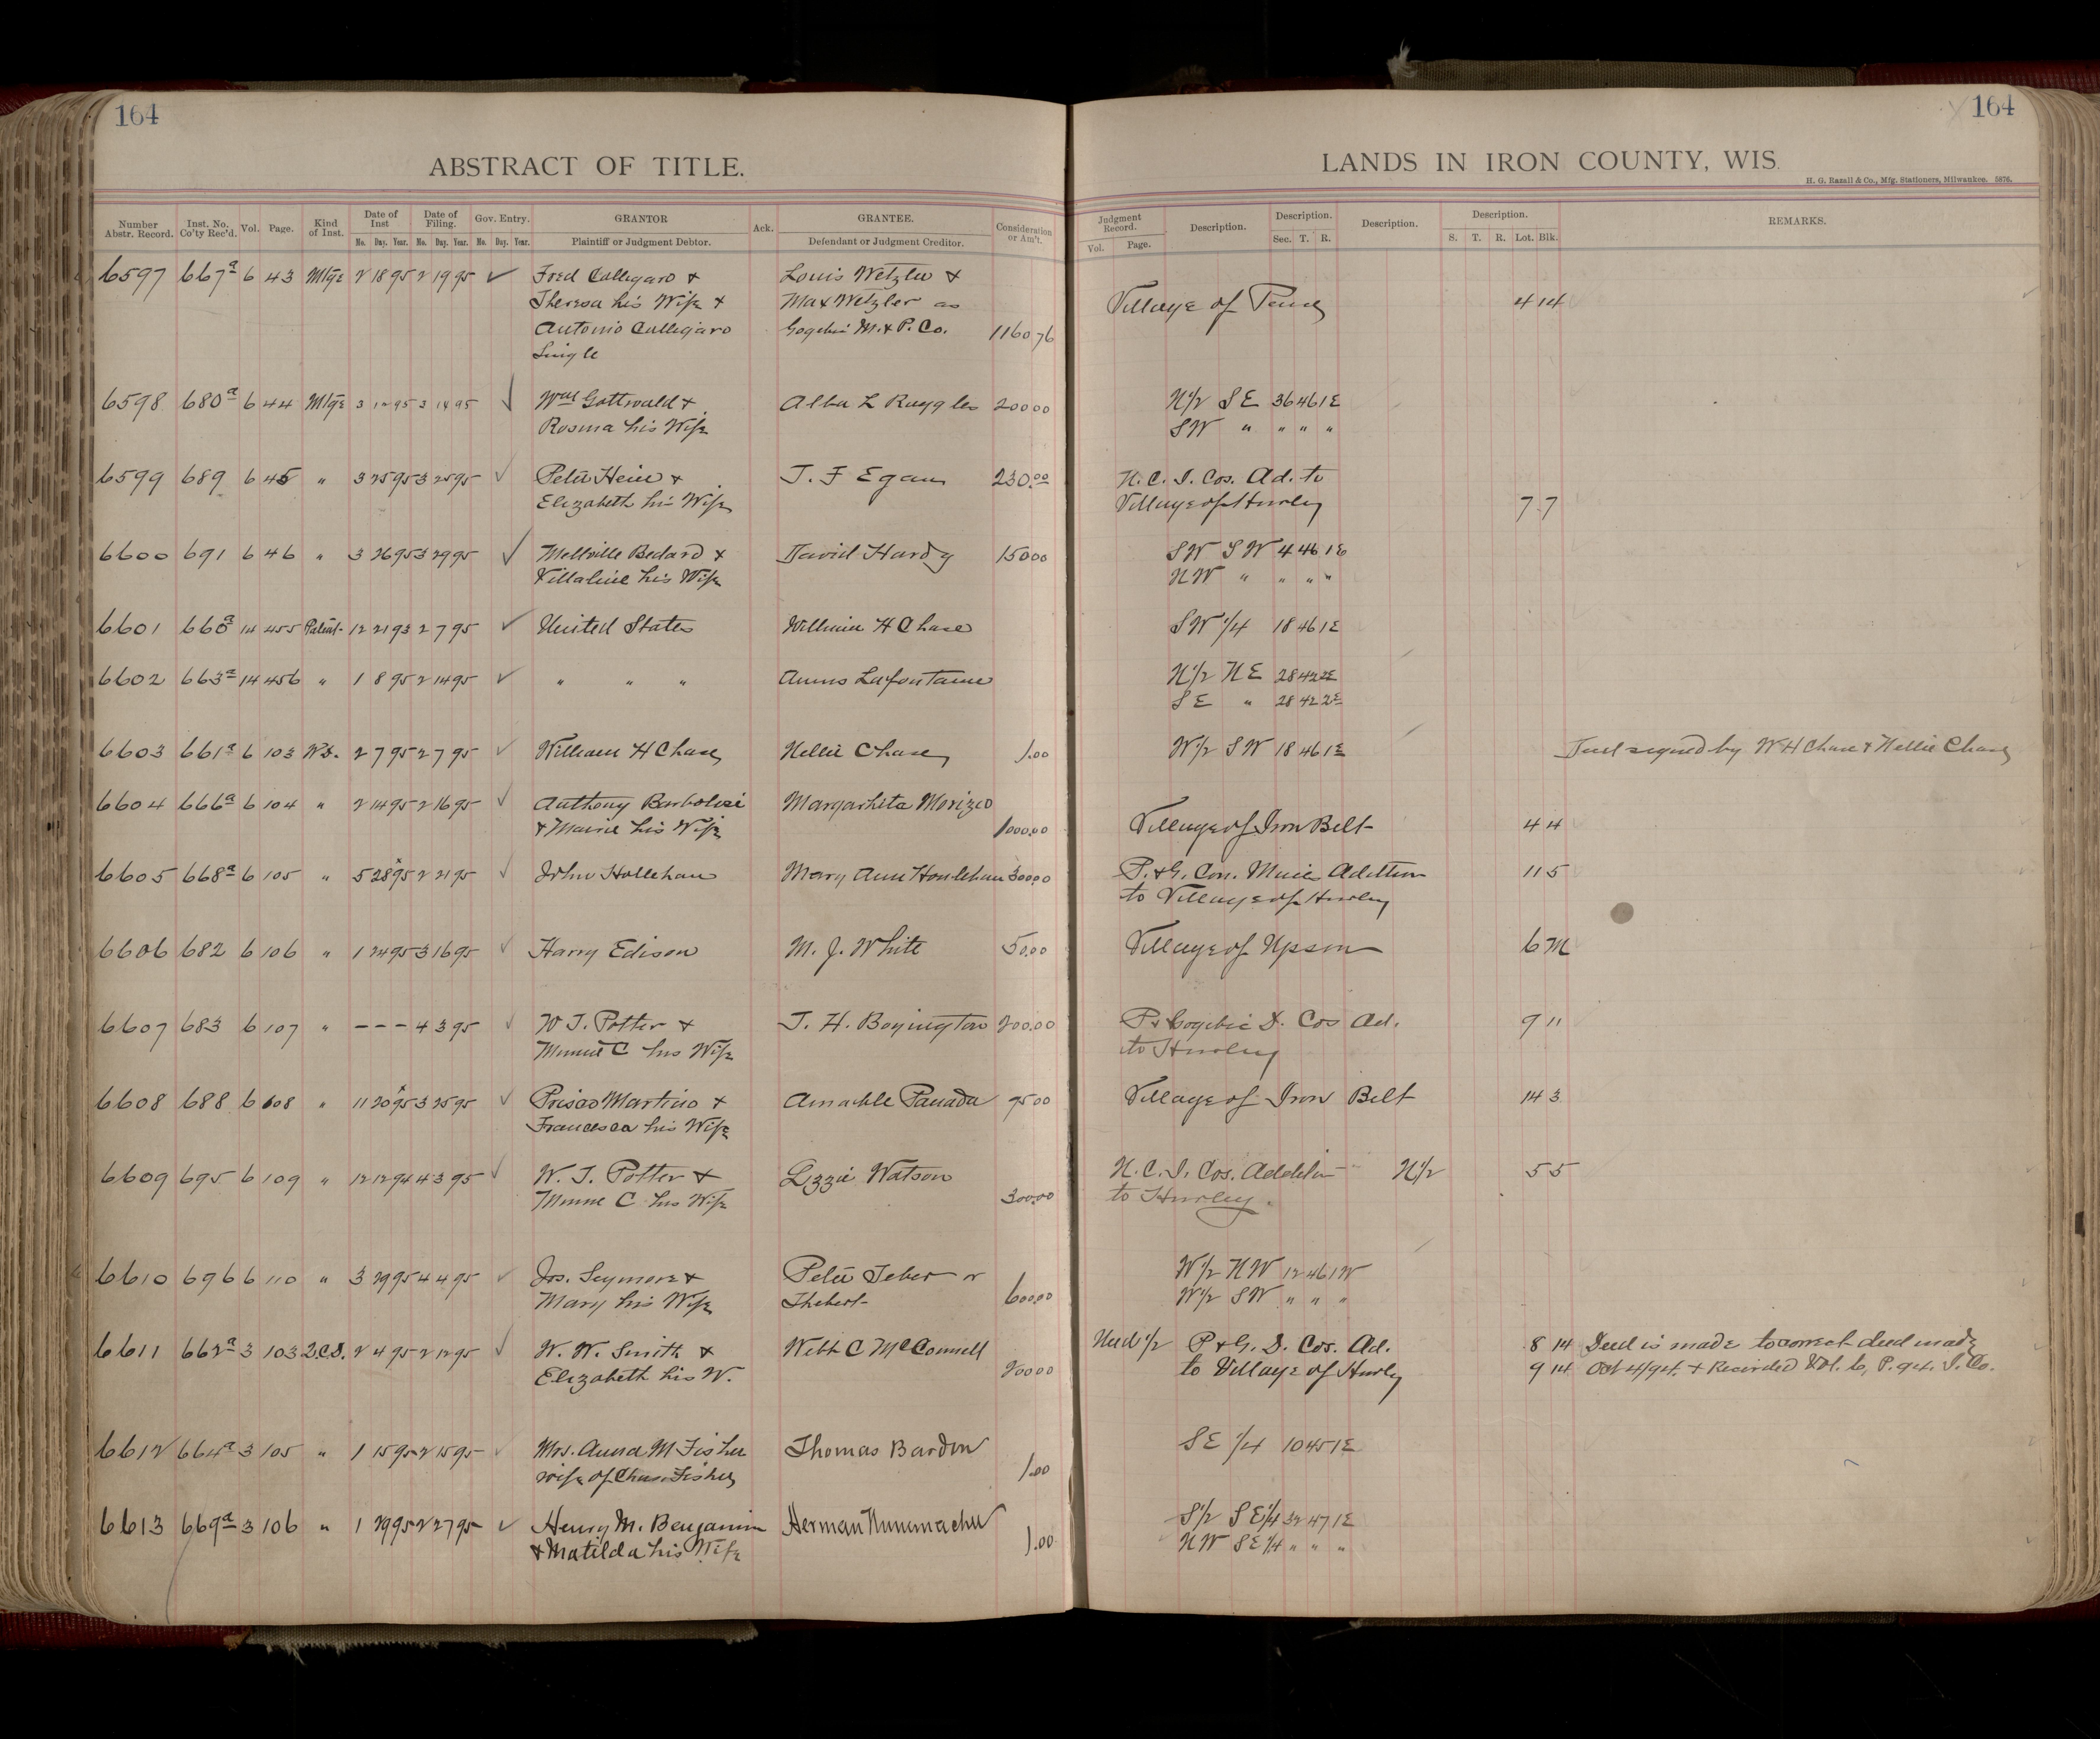 164
164
ABSTRACT OF TITLE.
LANDS IN IRON COUNTY, WIS.
H. G. Razall & Co., Mfg. Stationers, Milwaukee. 5876.
Number Abstr. Record. Inst. No. Co'ty Rec'd. Vol. Page. Kind of Inst. Date of Inst Mo. Day. Year. Date of Filing. Mo. Day. Year. Gov. Entry. Mo. Day. Year. GRANTOR Plaintiff or Judgment Debtor. Ack. GRANTEE. Defendant or Judgment Creditor. Consideration or Am't.
Judgment Record. Vol. Page. Description. Description. Sec. T. R. Description. Description. S. T. R. Lot. Blk. REMARKS.
6597 667a 6 43 Mtge 2 18 95 2 19 95 Fred Callegaro & Louis Wetzler &
Theresa his Wife & Max Wetzler as Village of 4 14
Antonio Callegaro Gogebic M. & P. Co. 1160 76
Single
6598 680a 6 44 Mtge 3 12 95 3 14 95 Wm Gottwald & Alba L Ruggles 200 00 N 1/2 SE 36 46 1E
Rosina his Wife SW " " " "
6599 689 6 45 " 3 25 95 3 25 95 Peter Heier & J. F Egan 230.00 N. C. I. Cos. Ad. to
Elizabeth his Wife Village of Hurley 7 7
6600 691 6 46 " 3 26 95 3 29 95 Mellville Bedard & David Hardy 150 00 SW SW 4 46 1E
his Wife NW " " " "
6601 660a 14 455 Patent 12 21 93 2 7 95 United States William H Chase SW 1/4 18 46 1E
6602 663a 14 456 " 1 8 95 2 14 95 " " " Lafontaine N 1/2 NE 28 42 2E
SE " 28 42 2E
6603 661a 6 103 W.D. 2 7 95 2 7 95 William H Chase Nellie Chase 1.00 W 1/2 SW 18 46 1E signed by W H Chase & Nellie Chase
6604 666a 6 104 " 2 14 95 2 16 95 Anthony & Margarhita
& Marie his Wife 1000.00 Village of Iron Belt 4 4
6605 668a 6 105 " 5 28 95 2 21 95 John Hollehan Mary Ann Houlehan 300.00 P. & G. Con. Mines Addition 1 15
to Village of Hurley
6606 682 6 106 " 1 24 95 3 16 95 Harry Edison M. J. White 50.00 Village of Upson 6 M
6607 683 6 107 " - - - 4 3 95 W J. Potter & J. H. Boyington 200.00 P & Gogebic D. Cos Ad. 9 11
Minnie C his Wife to Hurley
6608 688 6 108 " 11 20 95 3 25 95 Prisco Martino & Amachle Panada 95 00 Village of Iron Belt 14 3
Francesca his Wife
6609 695 6 109 " 12 12 94 4 3 95 W. J. Potter & Lizzie Watson N. C. I. Cos. Addition N 1/2 5 5
Minnie C his Wife 300.00 to Hurley.
6610 696 6 110 " 3 29 95 4 4 95 Jos. Seymore & Peter Teber or W 1/2 NW 12 46 1W
Mary his Wife Thebert 600.00 W 1/2 SW " " "
6611 662a 3 103 Q.C.D. 2 4 95 2 12 95 W. W. Smith & Webb C McConnell Und 1/2 P & G. D. Cos. Ad. 8 14 Deed is made to correct deed made
Elizabeth his W. 200 00 to Village of Hurley 9 14 Oct 4/94. & Recorded Vol. 6, P. 94. I. Co.
6612 664a 3 105 " 1 15 95 2 15 95 Mrs. Anna M Fisher Thomas Bardon SE 1/4 10 45 1E
wife of Chas Fisher 1.00
6613 669a 3 106 " 1 29 95 2 27 95 Henry M. Benjamin Herman Nunnemacher S 1/2 SE 1/4 32 47 1E
& Matilda his Wife 1.00 NW SE 1/4 " " "